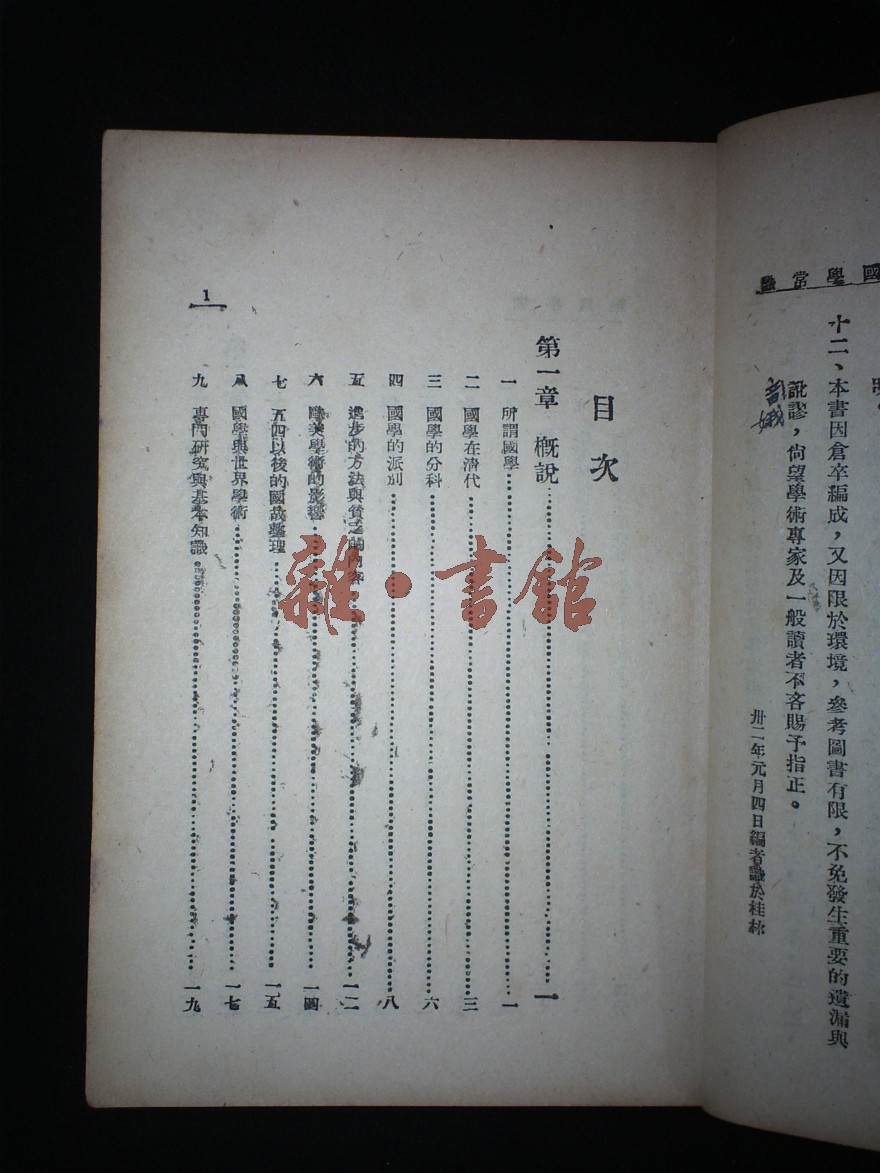 國學常識
十二、本書因倉卒編成，又因限於環境，參考圖書有限，不免發生重要的遺漏與
訛謬，尙望學術專家及一般讀者不吝賜予指正。
卅二年元月四日編者識於桂林
目次
第一章 槪說……一
一 所謂國學……一
二 國學在清代……三
三 國學的分科……六
四 國學的派別……八
五 進步的方法與貧乏的內容……一二
六 歐美學術的影響……一四
七 五四以後的國故整理……一五
八 國學與世界學術……一七
九 專門研究與基本知識……一九
1
雜·書館